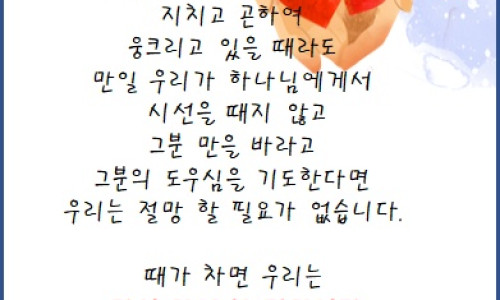 지치고 곤하여
웅크리고 있을 때라도
만일 우리가 하나님에게서
시선을 때지 않고
그분 만을 바라고
그분의 도우심을 기도한다면
우리는 절망 할 필요가 없습니다.
때가 차면 우리는